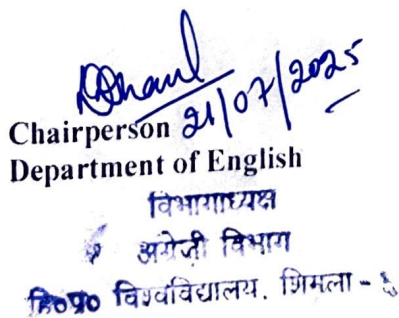 21/07/2025
Chairperson
Department of English
विभागाध्यक्ष
अंग्रेजी विभाग
हि०प्र० विश्वविद्यालय, शिमला -